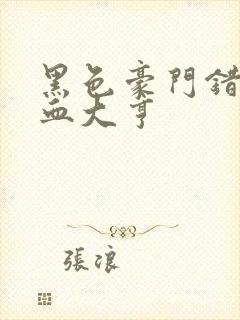 黑色豪門錯
血大亨
張浪